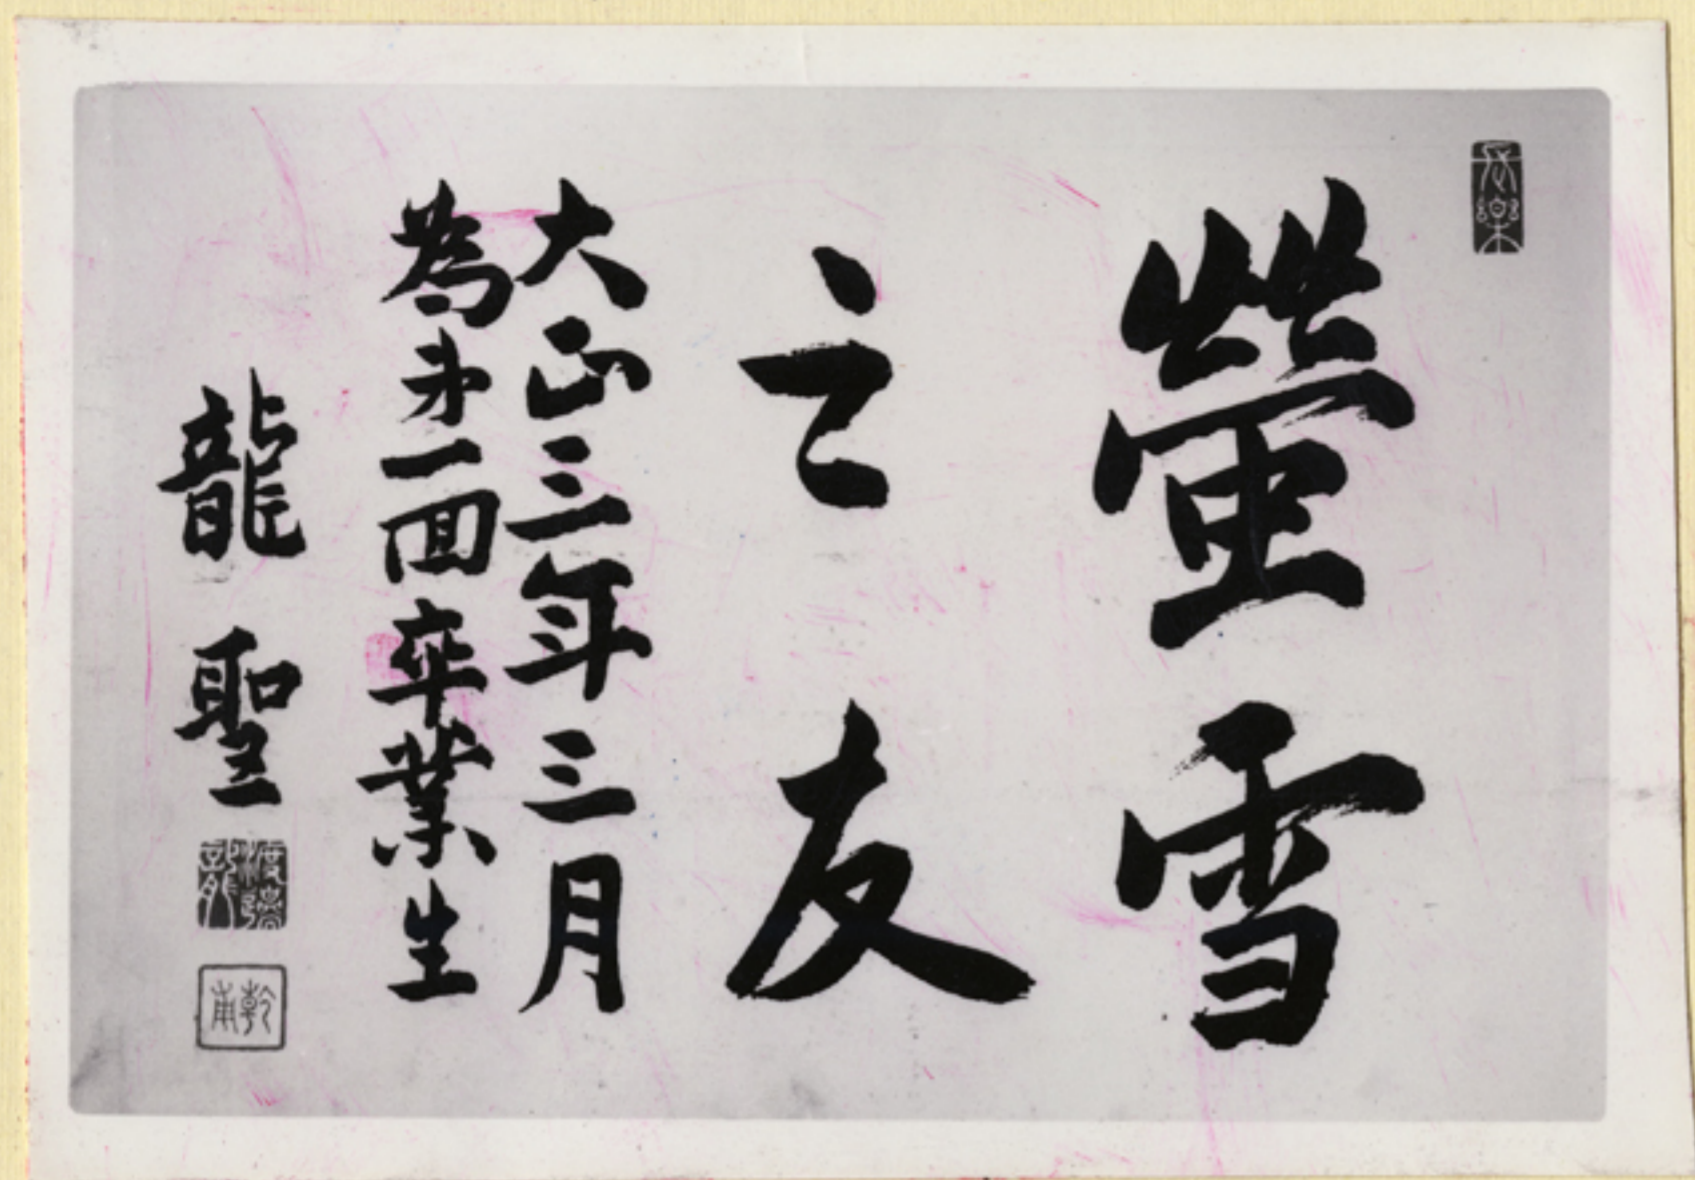 螢雪
之友
大正三年三月
為第一回卒業生
龍聖
乾甫